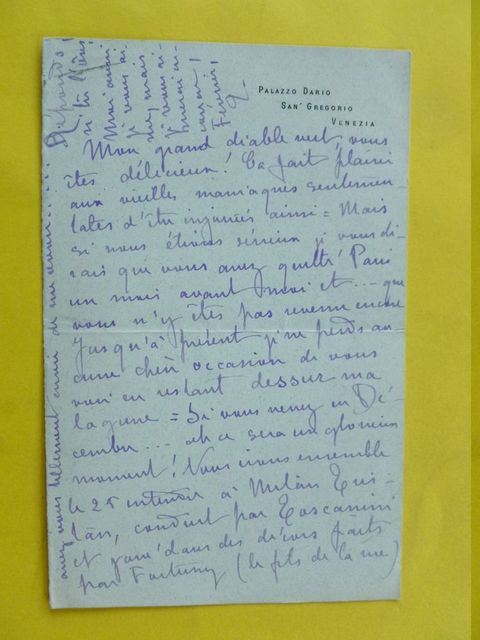 PALAZZO DARIO
SAN GREGORIO
VENEZIA
Mon grand diable vert, vous
êtes délicieux! Ça fait plaisir
aux vieilles maniaques sentimen-
tales d'être injuriées ainsi = Mais
si nous étions sérieux je vous di-
rais que vous avez quitté Paris
un mois avant moi et ... que
vous n'y êtes pas revenu encore
jusqu'à présent je ne perds au-
cune chère occasion de vous
voir en restant dessus ma
lagune = Si vous venez en Dé-
cembre ... ah ce sera un glorieux
moment! Nous irons ensemble
le 25 entendre à Milan Tris-
tan, conduit par Toscanini
et joué dans des décors faits
par Fortuny (le fils de la me)
avez vous tellement envie de me revoir
Réponds!
si tu l'oses!
Moi aussi
je vous ai